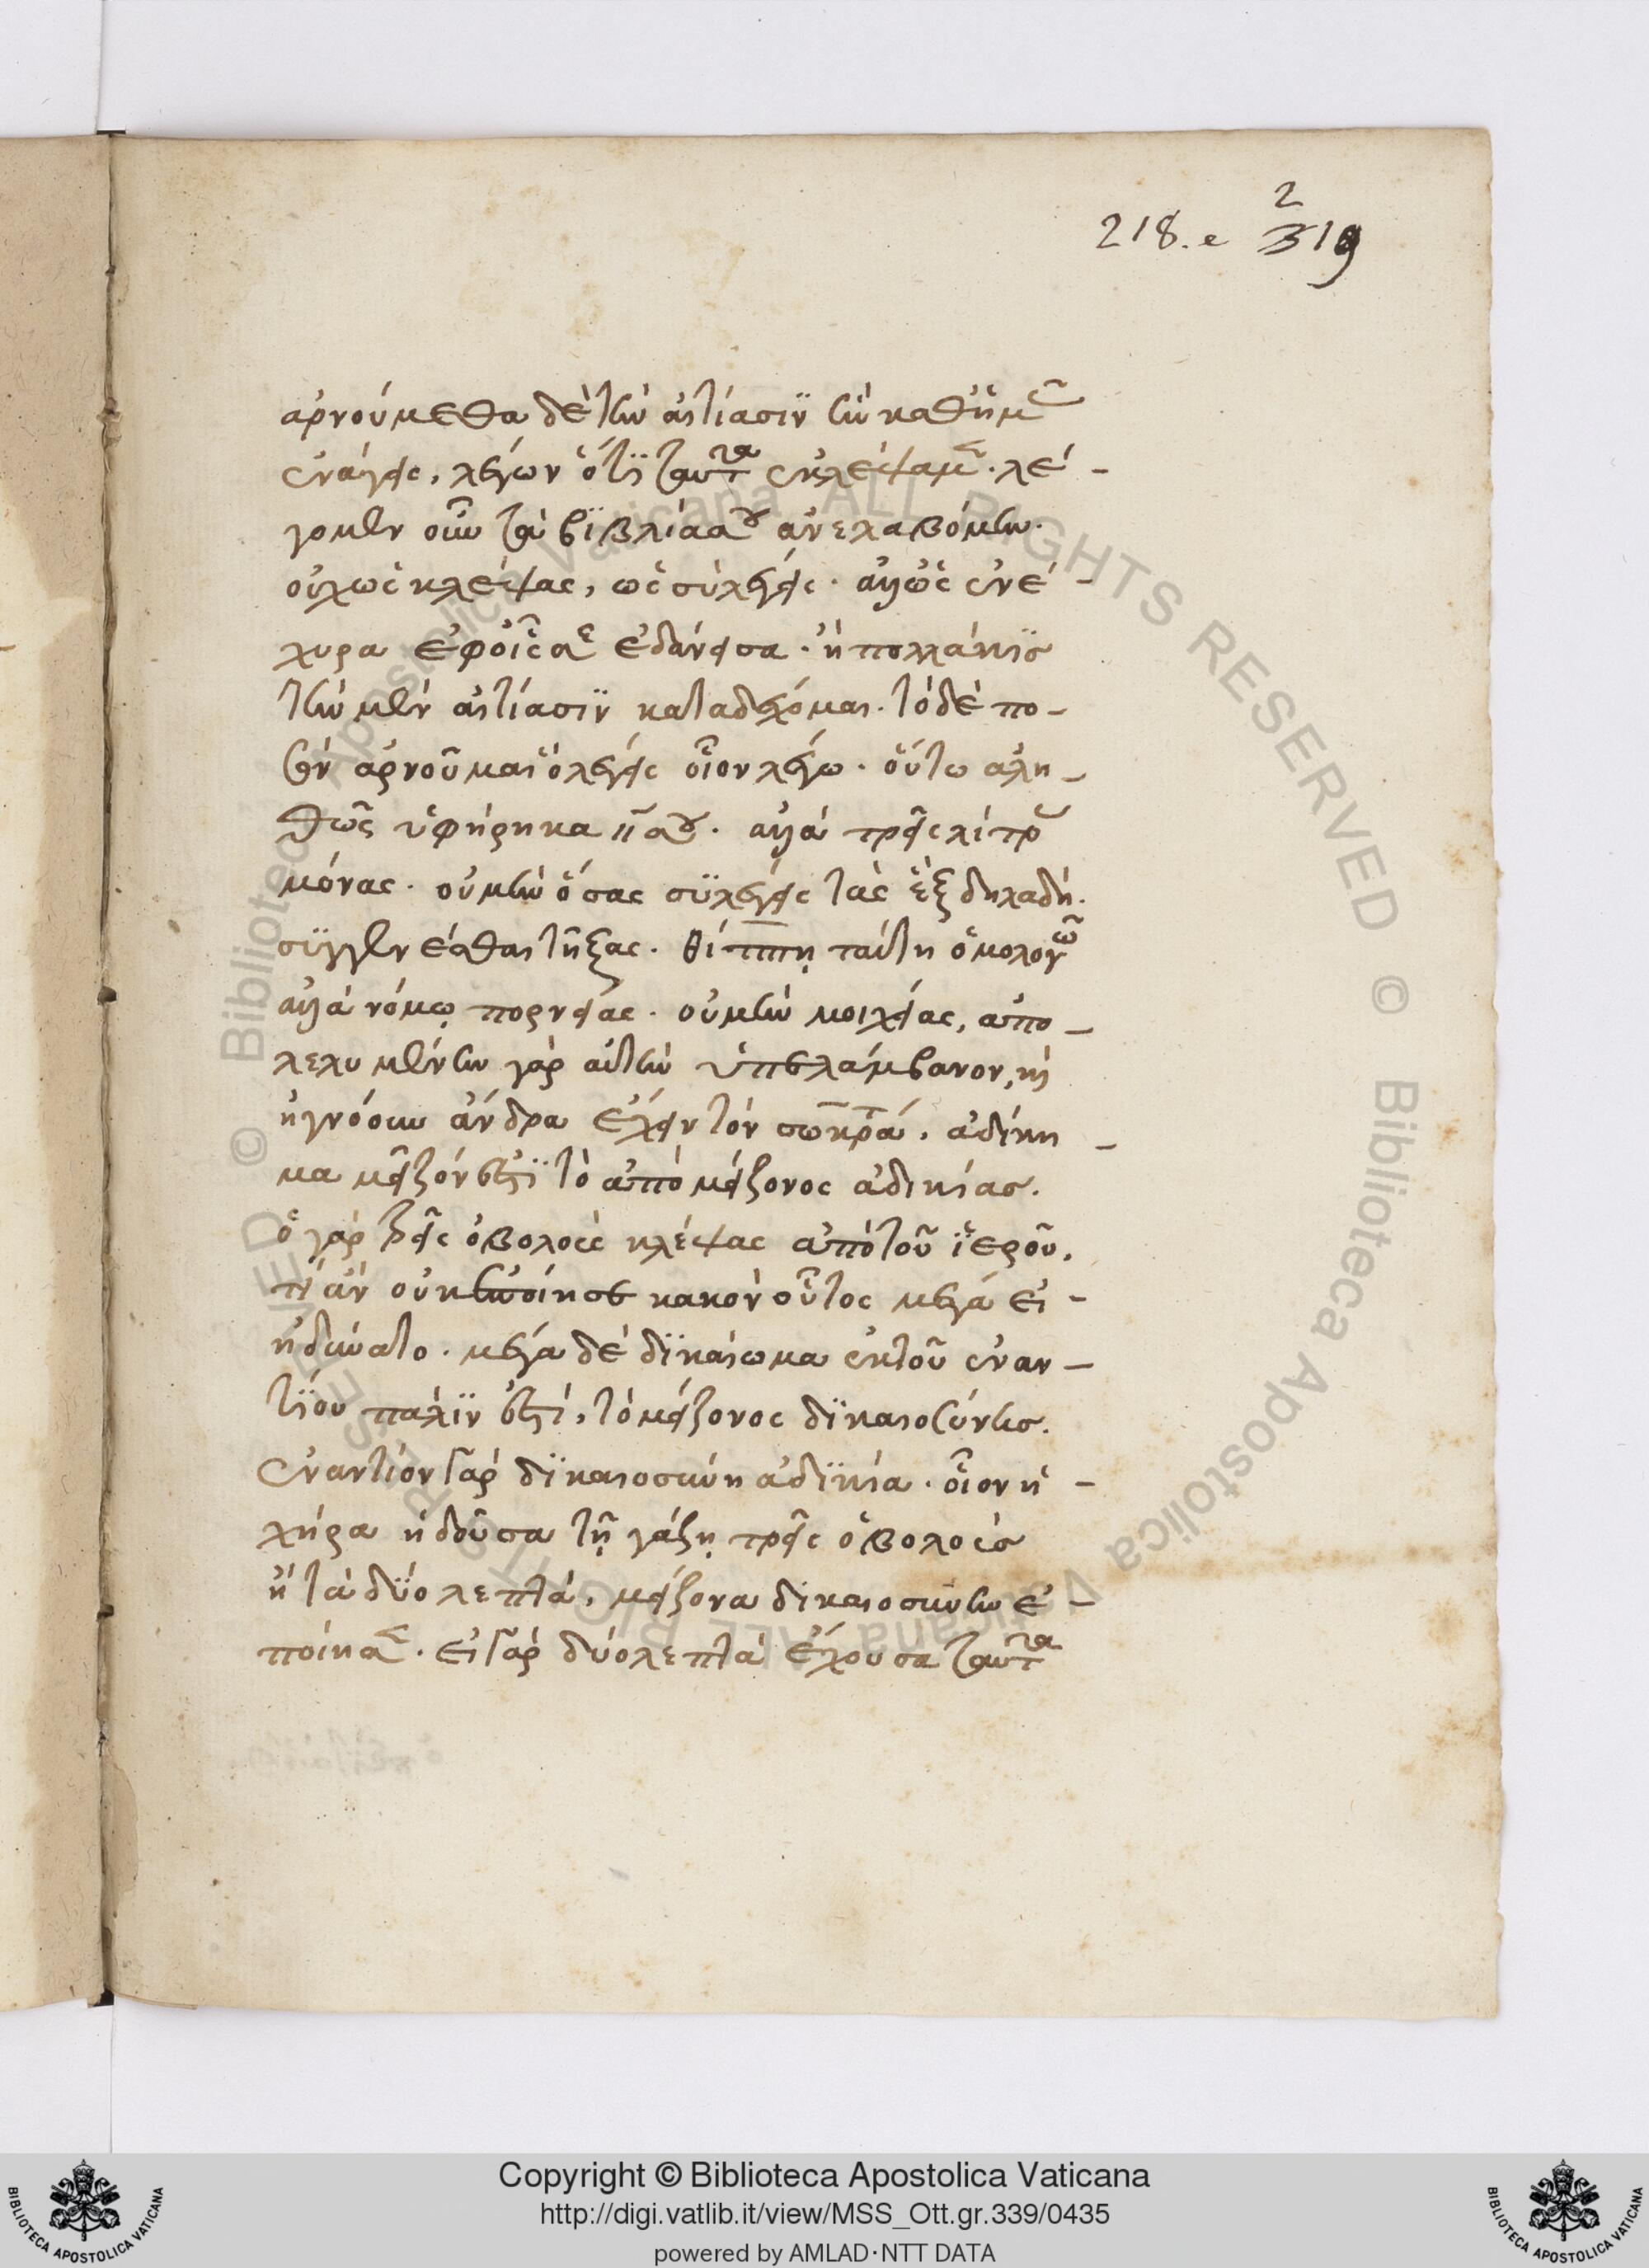 218.e 2 319
ἀρνούμεθα δὲ τὴν αἰτίασιν ἣν καθ' ἡμῶν
ἐνάγεις, λέγων ὅτι ταῦτα ἐκλέψαμεν. λέ-
γομεν οὖν τὰ βιβλία αὐτοῦ ἀνελαβόμην.
οὐχ ὡς κλέψας, ὡς σὺ λέγεις. ἀλλ' ὡς ἐνέ-
χυρα ἐφ' οἷς σε ἐδάνεισα. ἢ πολλάκις
τὴν μὲν αἰτίασιν καταδέχομαι. τὸ δὲ πο-
σὸν ἀρνοῦμαι ὃ λέγεις οἷον λέγω. οὕτω ἀλη-
θῶς ὑφῄρηκα αὐτοῦ. ἀλλὰ τρεῖς λίτρας
μόνας. οὐ μὴν ὅσας σὺ λέγεις τὰς ἓξ δηλαδή.
συγγενέσθαι τῇ ταύτῃ ὁμολογῶ
ἀλλὰ νόμῳ πορνείας. οὐ μὴν μοιχείας, ἀπο-
λελυμένην γὰρ αὐτὴν ὑπελάμβανον, καὶ
ἠγνόουν ἄνδρα ἔχειν τὸν σωκράτην. ἀδίκη-
μα μεῖζόν ἐστι τὸ ἀπὸ μείζονος ἀδικίας.
ὁ γὰρ τρεῖς ὀβολοὺς κλέψας ἀπὸ τοῦ ἱεροῦ.
τί ἂν οὐκ ἐποίησε κακὸν οὗτος μέγα εἰ
ἠδύνατο. μέγα δὲ δικαίωμα ἐκ τοῦ ἐναν-
τίου πάλιν ἐστί, τὸ μείζονος δικαιοσύνης.
ἐναντίον γὰρ δικαιοσύνη ἀδικία. οἷον ἡ
χήρα ἡ δοῦσα τῇ γάζῃ τρεῖς ὀβολοὺς
ἢ τὰ δύο λεπτά, μείζονα δικαιοσύνην ἐ-
ποίησεν. εἰ γὰρ δύο λεπτὰ ἔχουσα ταῦτα
Copyright © Biblioteca Apostolica Vaticana
http://digi.vatlib.it/view/MSS_Ott.gr.339/0435
powered by AMLAD·NTT DATA
BIBLIOTECA APOSTOLICA VATICANA
BIBLIOTECA APOSTOLICA VATICANA